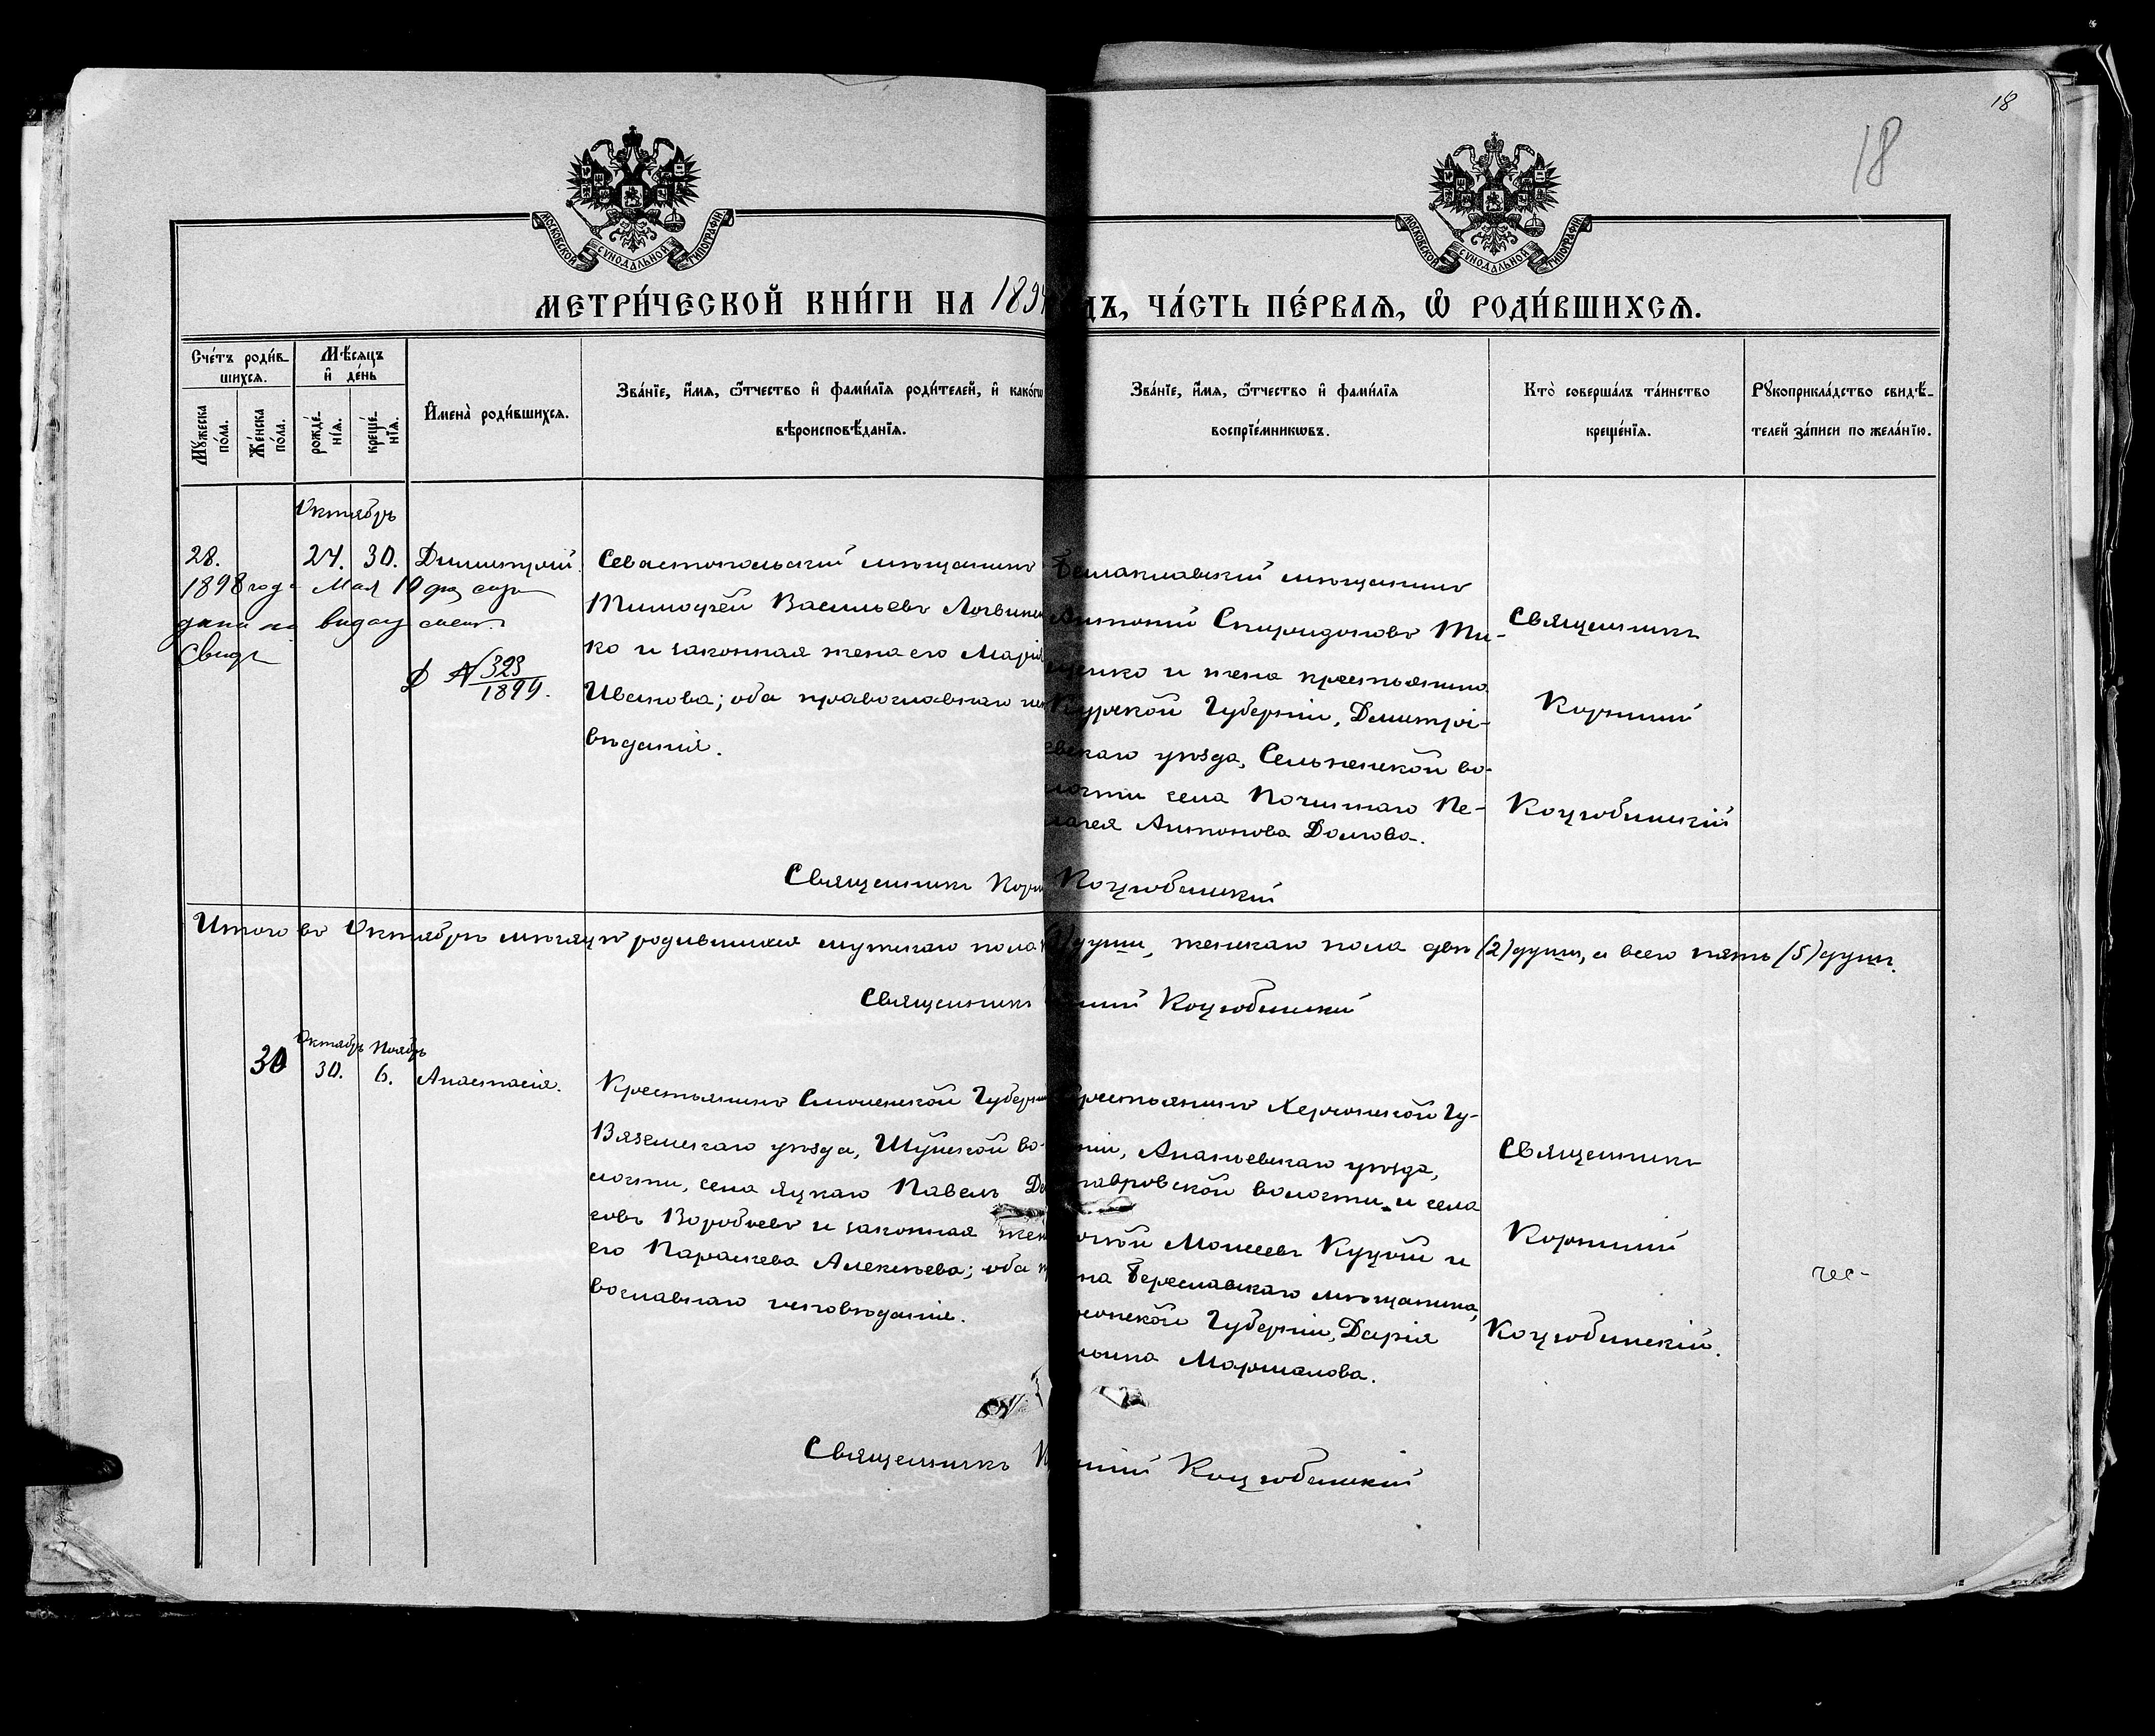 18
18
МОСКОВСКОЙ СѴНОДАЛЬНОЙ ТИПОГРАФІИ
МОСКОВСКОЙ СѴНОДАЛЬНОЙ ТИПОГРАФІИ
МЕТРИ́ЧЕСКОЙ КНИ́ГИ НА 189 ДЪ, ЧА́СТЬ ПЕ́РВАѦ, Ѽ РОДИ́ВШИХСѦ.
Сче́тъ роди́в-
шихсѧ.
Мѣ́сѧцъ
и҆ де́нь
Мꙋ́жеска по́ла.
Же́нска по́ла.
рожде́-нїѧ.
креще́-нїѧ.
И҆мена̀ роди́вшихсѧ.
Зва́нїе, и҆́мѧ, ѻ҆́тчество и҆ фами́лїѧ роди́телей, и҆ како́гѡ
вѣроисповѣ́данїѧ.
Зва́нїе, и҆́мѧ, ѻ҆́тчество и҆ фами́лїѧ
воспрїе́мникѡвъ.
Кто̀ соверша́лъ та́инство
креще́нїѧ.
Рꙋкоприкла́дство свидѣ́-
телей за́писи по жела́нїю.
Октябрь
28. 24. 30. Димитрій.
1898 года Мая 10
дана
Свид
№ 323
1899.
Севастопольскій мѣщанинъ
Тимофей Васильевъ Логвинен
ко и законная жена его Марія
Иванова; оба православнаго ис
вѣданія.
Балаклавскій мѣщанинъ
Антоній Спиридоновъ Ти-
щенко и жена крестьянина
Курской Губерніи, Димитрі-
евскаго уѣзда, Сельненской во-
лости села Почипнаго Пе-
лагея Антонова Долгова.
Священникъ
Корнилій
Коцюбинскій
Священникъ Корн Коцюбинскій
Итого въ Октябрѣ мѣсяцѣ родившихся мужескаго пола души, женскаго пола двѣ (2) души, а всего пять (5) душъ.
Священникъ нилій Коцюбинскій
Октябрь Ноябрь
30 30. 6. Анастасія.
Крестьянинъ Смоленской Губерн
Вяземскаго уѣзда, Шуйской во-
лости, села Яцкаго Павелъ
совъ Воробьевъ и законная жен
его Параскева Алексѣева; оба п
вославнаго исповѣданія.
рестьянинъ Херсонской Гу-
ніи, Ананьевскаго уѣзда,
тавровской волости и села
Моисеевъ Куцый и
на Береславскаго мѣщанина,
сонской Губерніи, Дарія
Маршалова.
Священникъ
Корнилій
Коцюбинскій.
Священникъ К нилій Коцюбинскій